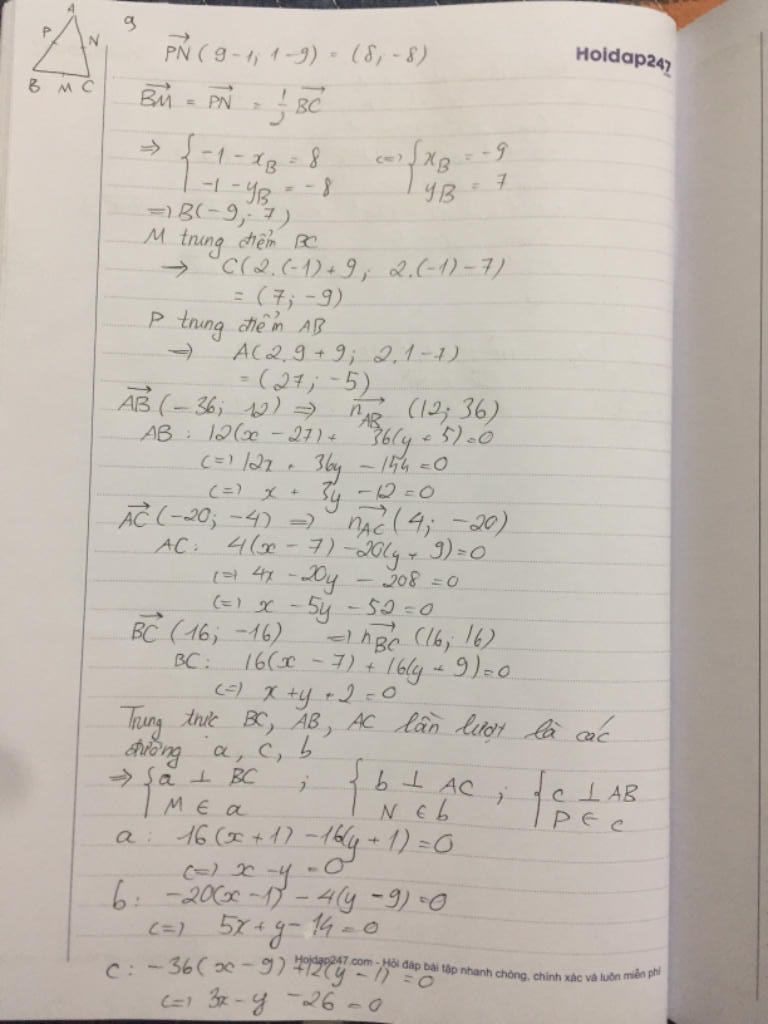 A
P
N
B M C
9
Hoidap247
PN (9-1; 1-9) = (8; -8)
BM = PN = 1/2 BC
=> { -1 - x_B = 8 <=> { x_B = -9
-1 - y_B = -8 y_B = 7
=> B(-9; 7)
M trung điểm BC
=> C(2.(-1)+9; 2.(-1)-7)
= (7; -9)
P trung điểm AB
=> A(2.9+9; 2.1-7)
= (27; -5)
AB (-36; 12) => n_AB (12; 36)
AB: 12(x - 27) + 36(y + 5) = 0
<=> 12x + 36y - 154 = 0
<=> x + 3y - 12 = 0
AC (-20; -4) => n_AC (4; -20)
AC: 4(x - 7) - 20(y + 9) = 0
<=> 4x - 20y - 208 = 0
<=> x - 5y - 52 = 0
BC (16; -16) => n_BC (16; 16)
BC: 16(x - 7) + 16(y + 9) = 0
<=> x + y + 2 = 0
Trung trực BC, AB, AC lần lượt là các
đường a, c, b
=> { a ⊥ BC ; { b ⊥ AC ; { c ⊥ AB
M ∈ a N ∈ b P ∈ c
a: 16(x + 1) - 16(y + 1) = 0
<=> x - y = 0
b: -20(x - 1) - 4(y - 9) = 0
<=> 5x + y - 14 = 0
Hoidap247.com - Hỏi đáp bài tập nhanh chóng, chính xác và luôn miễn phí
c: -36(x - 9) + 12(y - 1) = 0
<=> 3x - y - 26 = 0